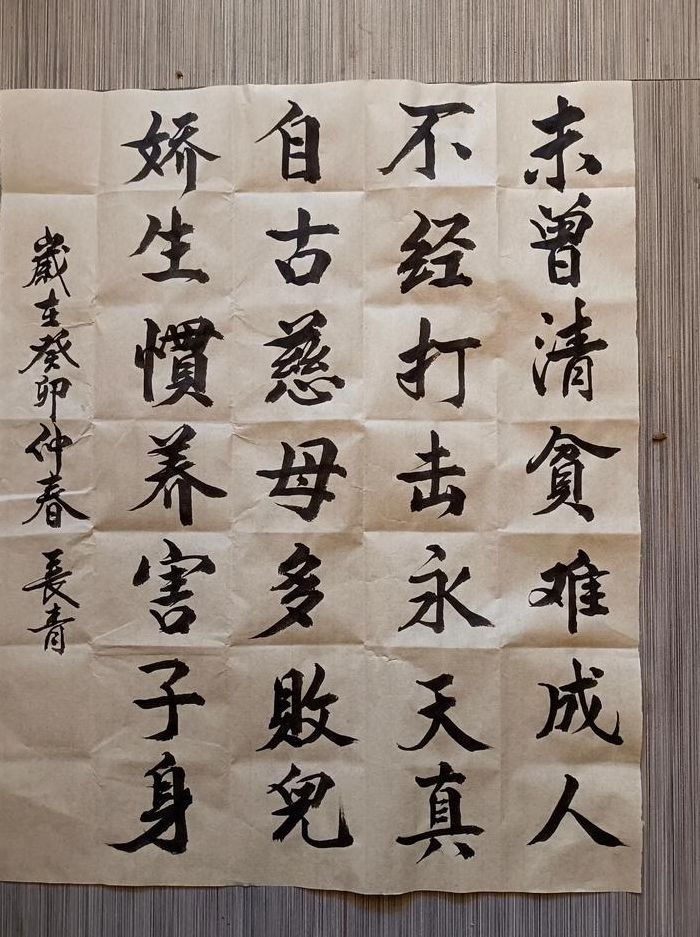 未曾清貧难成人
不经打击永天真
自古慈母多敗兒
娇生慣养害子身
歲在癸卯仲春 長青